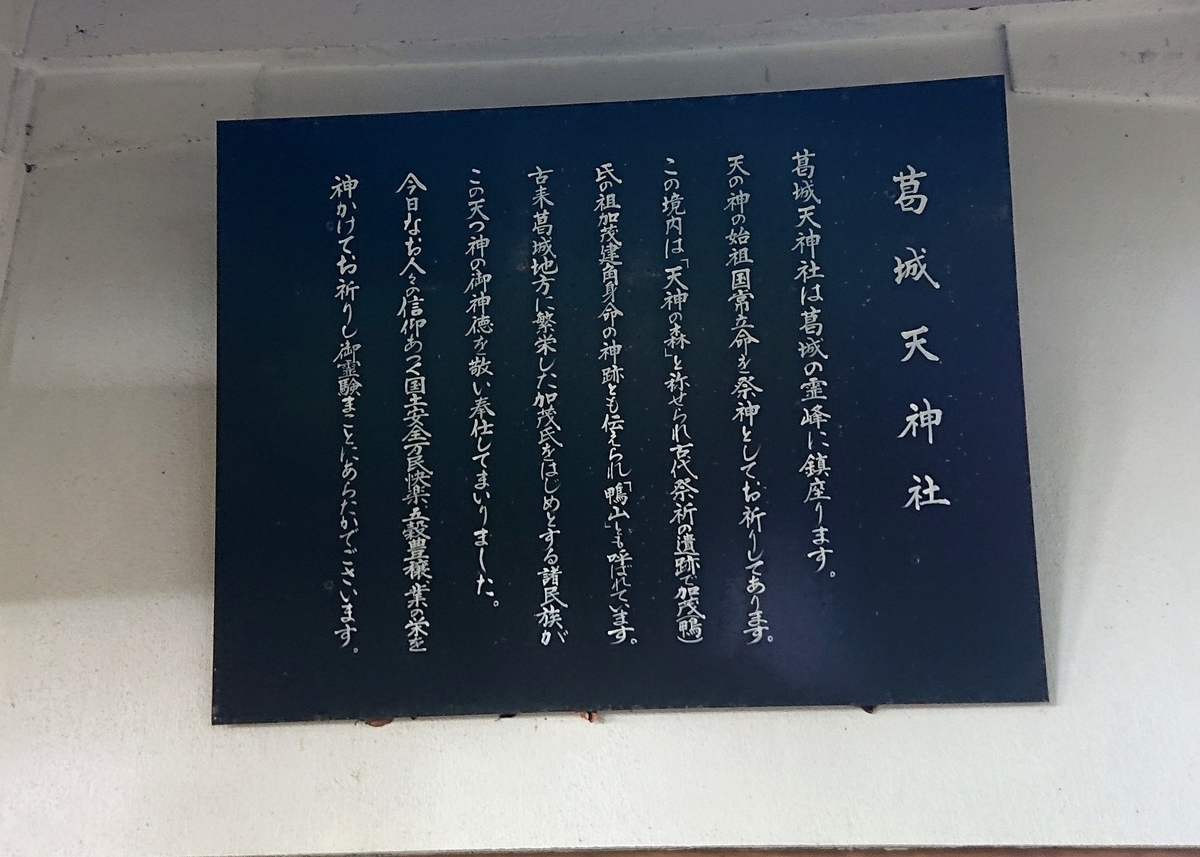 葛城天神社
葛城天神社は葛城の霊峰に鎮座ります。
天の神の始祖国常立命を祭神としてお祈りしてあります。
この境内は「天神の森」と称せられ古代祭祈の遺跡で加茂(鴨)
氏の祖加茂建角身命の神跡とも伝えられ「鴨山」とも呼ばれています。
古来葛城地方に繁栄した加茂氏をはじめとする諸民族が
この天つ神の御神徳を敬い奉仕してまいりました。
今日なお人々の信仰あつく国土安全万民快楽五穀豊穣業の栄を
神かけてお祈りし御霊験まことにあらたかでごさいます。